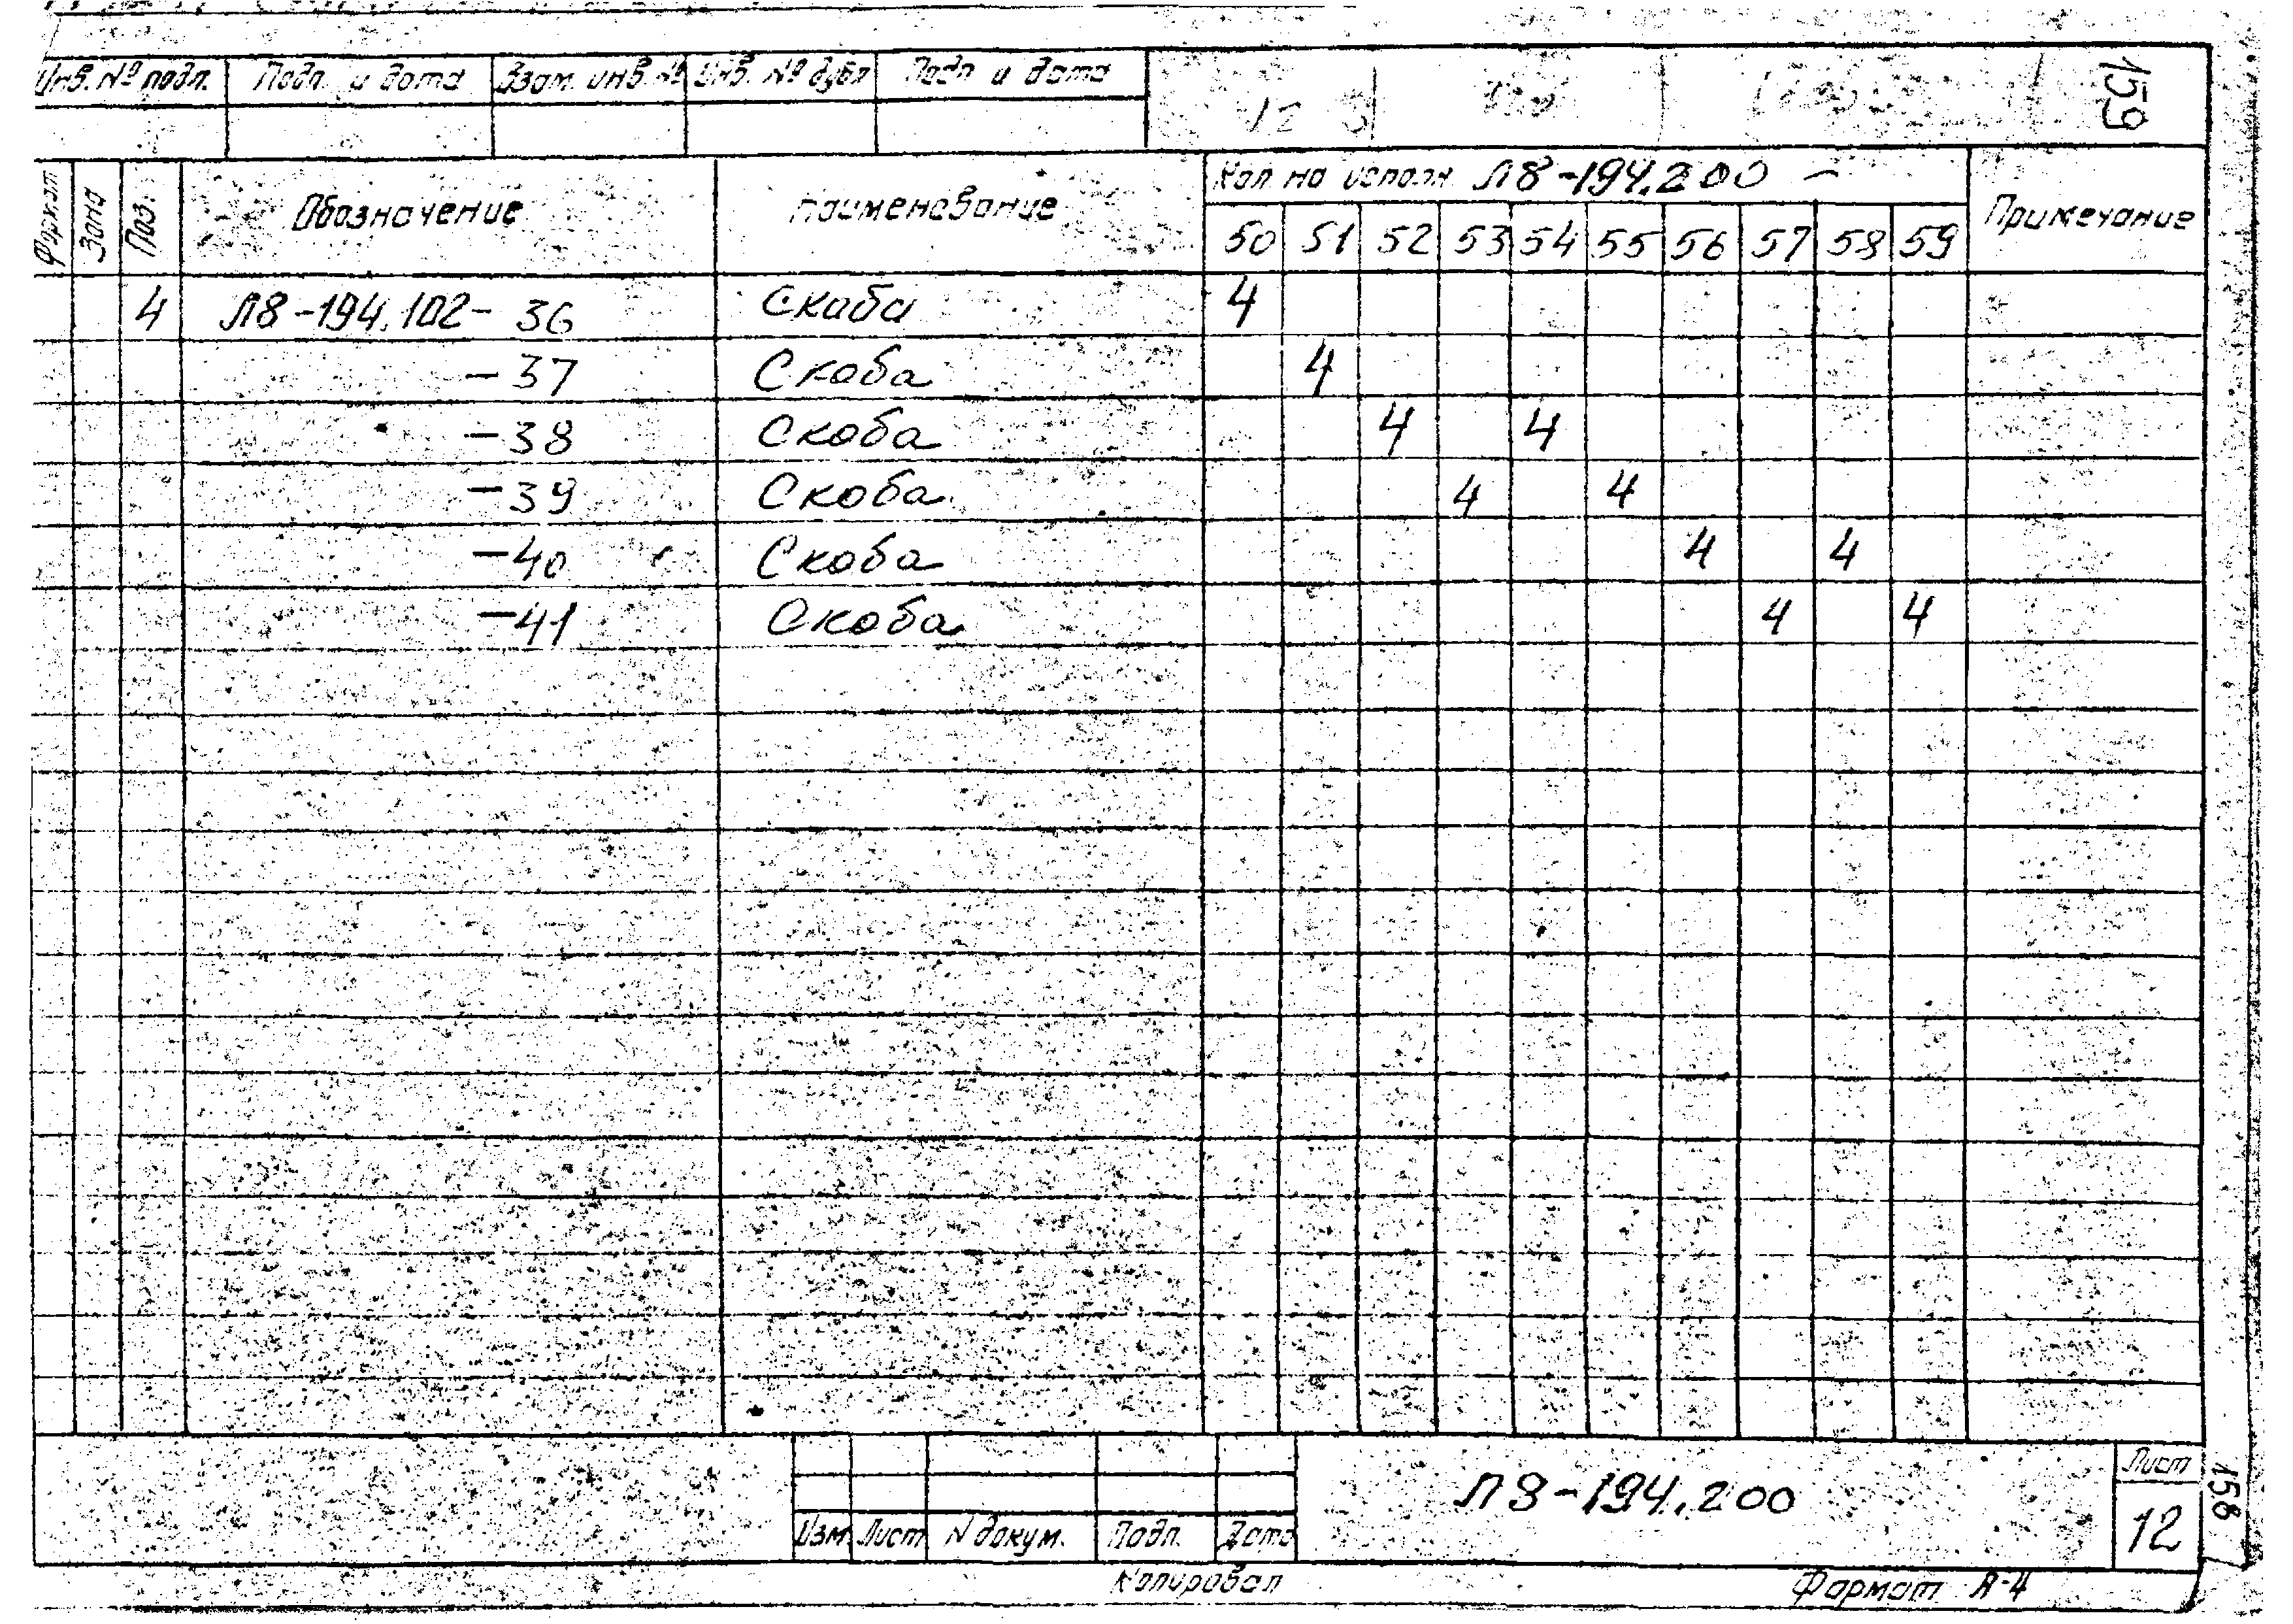 Инв. № подл. Подп. и дата Взам. инв. № Инв. № дубл Подп и дата
159
Формат Зона Поз. Обозначение Наименование Кол на исполн Л8-194.200 - Примечание
50 51 52 53 54 55 56 57 58 59
4 Л8-194.102- 36 Скоба 4
-37 Скоба 4
-38 Скоба 4 4
-39 Скоба 4 4
-40 Скоба 4 4
-41 Скоба 4 4
Л8-194.200
Лист
12
158
Изм Лист N докум. Подп. Дата
Копировал Формат А-4